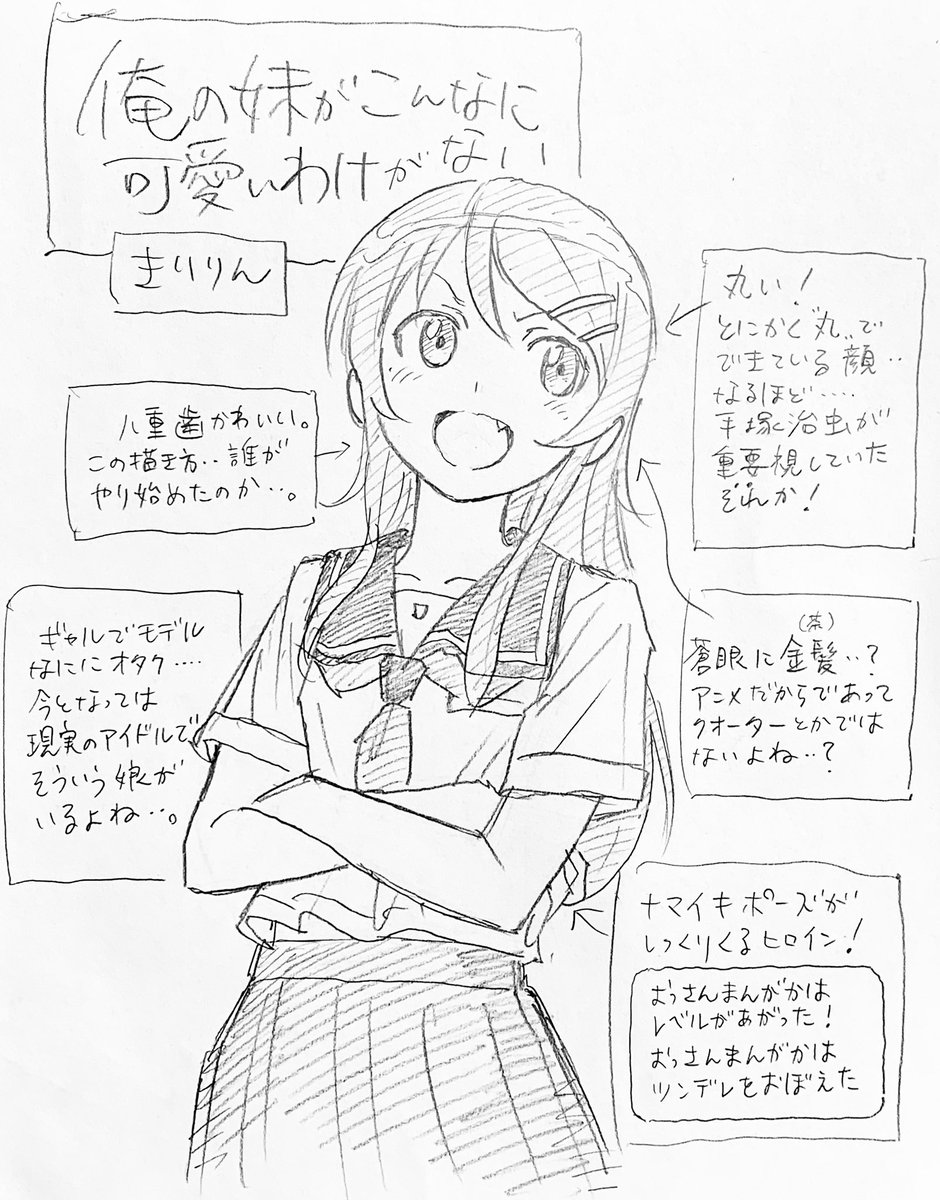 俺の妹がこんなに
可愛いわけがない
きりりん
丸い！
とにかく“丸”で
できている顔‥
なるほど‥‥
手塚治虫が
重要視していた
ぞれか！
八重歯かわいい。
この描き方‥誰が
やり始めたのか‥。
ギャルでモデル
なにに オタク‥‥
今となっては
現実のアイドルで
そういう娘が
いるよね‥。
(茶)
蒼眼に金髪‥？
アニメだからであって
クオーターとかでは
ないよね‥？
ナマイキポーズが
しっくりくるヒロイン！
おっさんまんがかは
レベルがあがった！
おっさんまんがかは
ツンデレをおぼえた